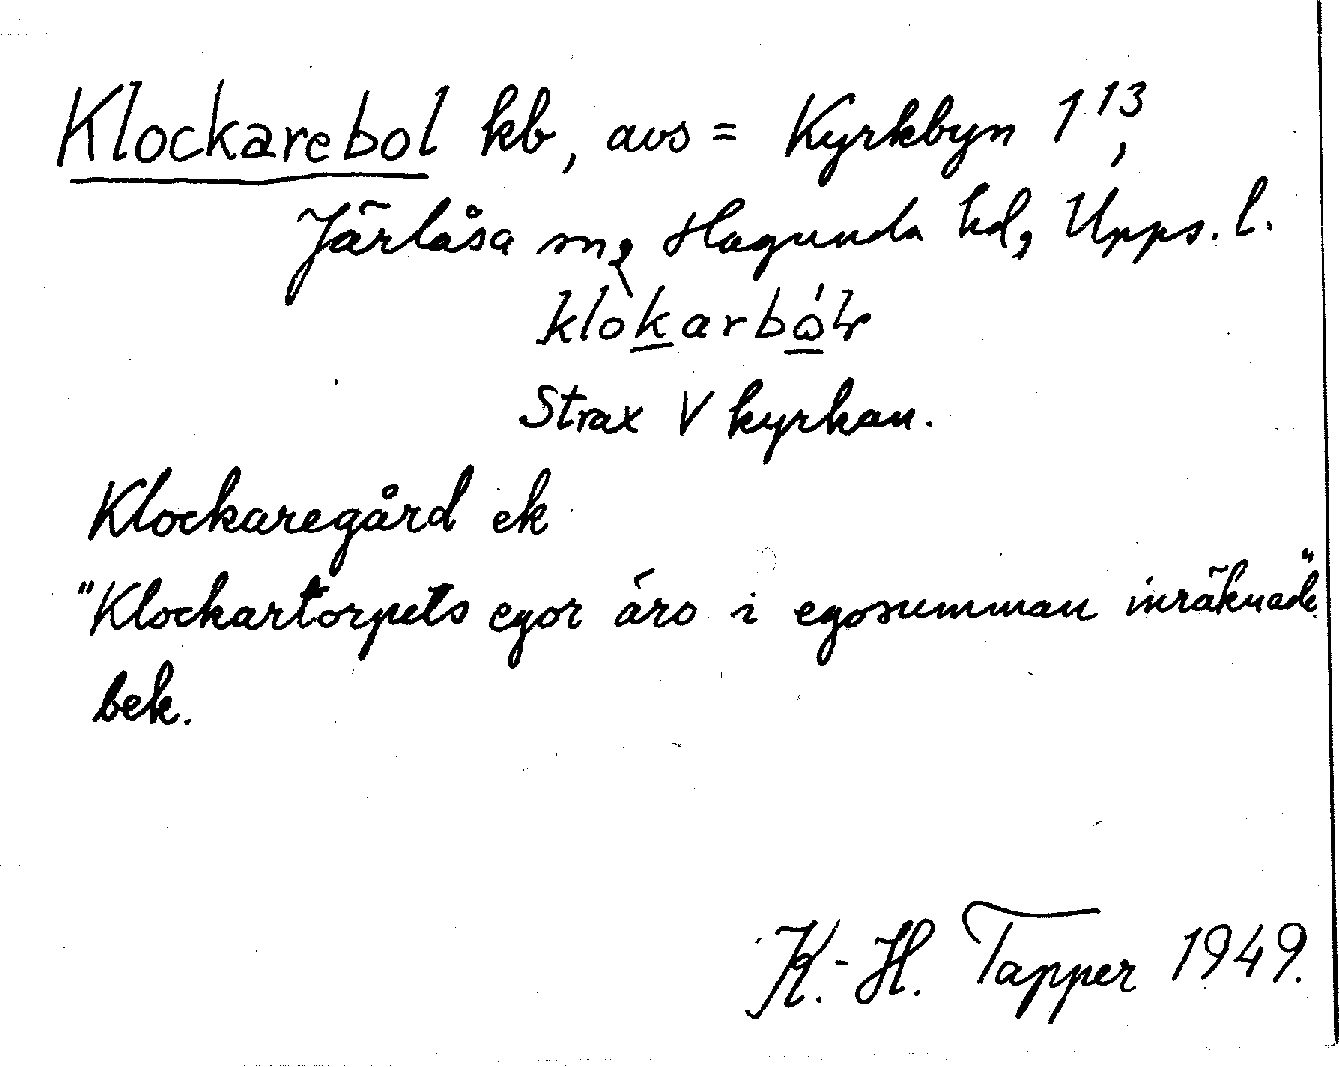 Klockarebol kb, avs = Kyrkbyn 1¹³,
Järlåsa sn, Hagunda hd, Upps. l.
Strax V kyrkan.
Klockaregård ek
"Klockartorpets egor äro i egosumman inräknade"
bek.
K.-H. Tapper 1949.